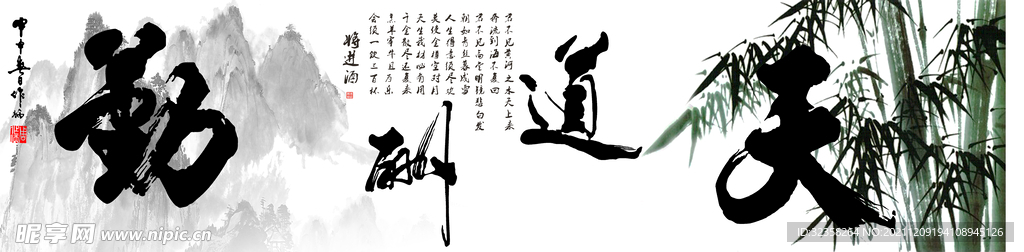 天
道
酬
勤
君不见黄河之水天上来
奔流到海不复回
君不见高堂明镜悲白发
朝如青丝暮成雪
人生得意须尽欢
莫使金樽空对月
天生我材必有用
千金散尽还复来
烹羊宰牛且为乐
会须一饮三百杯
将进酒
昵享网 www.nipic.cn
ID:32358264 NO:20211209194108945126